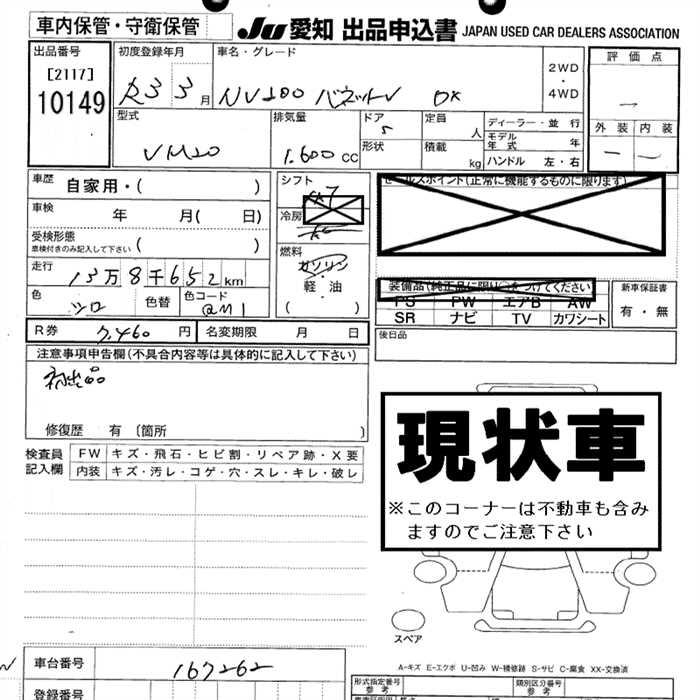 車内保管・守衛保管
JU 愛知 出品申込書 JAPAN USED CAR DEALERS ASSOCIATION
出品番号
[2117]
10149
初度登録年月
R3 3 月
車名・グレード
NV200 バネットV DX
2WD
・
4WD
評価点
―
外装 内装
― ―
型式
VM20
排気量
1.600 cc
ドア
5
形状
定員
人
積載
kg
ディーラー・並行
モデル年式 年
ハンドル 左・右
車歴
自家用・( )
車検
年 月( 日)
受検形態
車検付きのみ記入して下さい ( )
走行
13万8千652km
色
シロ
色替
色コード
QM1
シフト
冷房
燃料
ガソリン
・
軽・油
( )
セールスポイント(正常に機能するものに限ります)
装備品(純正品に限り○をつけてください)
PS PW エアB AW
SR ナビ TV カワシート
新車保証書
有・無
R券 7,460 円
名変期限 月 日
後日品
注意事項申告欄(不具合内容等は具体的に記入して下さい)
初出品
修復歴 有 〔箇所 〕
検査員記入欄
FW キズ・飛石・ヒビ割・リペア跡・X要
内装 キズ・汚レ・コゲ・穴・スレ・キレ・破レ
現状車
※このコーナーは不動車も含み
ますのでご注意下さい
スペア
A-キズ E-エクボ U-凹み W-補修跡 S-サビ C-腐食 XX-交換済
車台番号 167262
登録番号
型式指定番号
参考
類別区分番号
参考